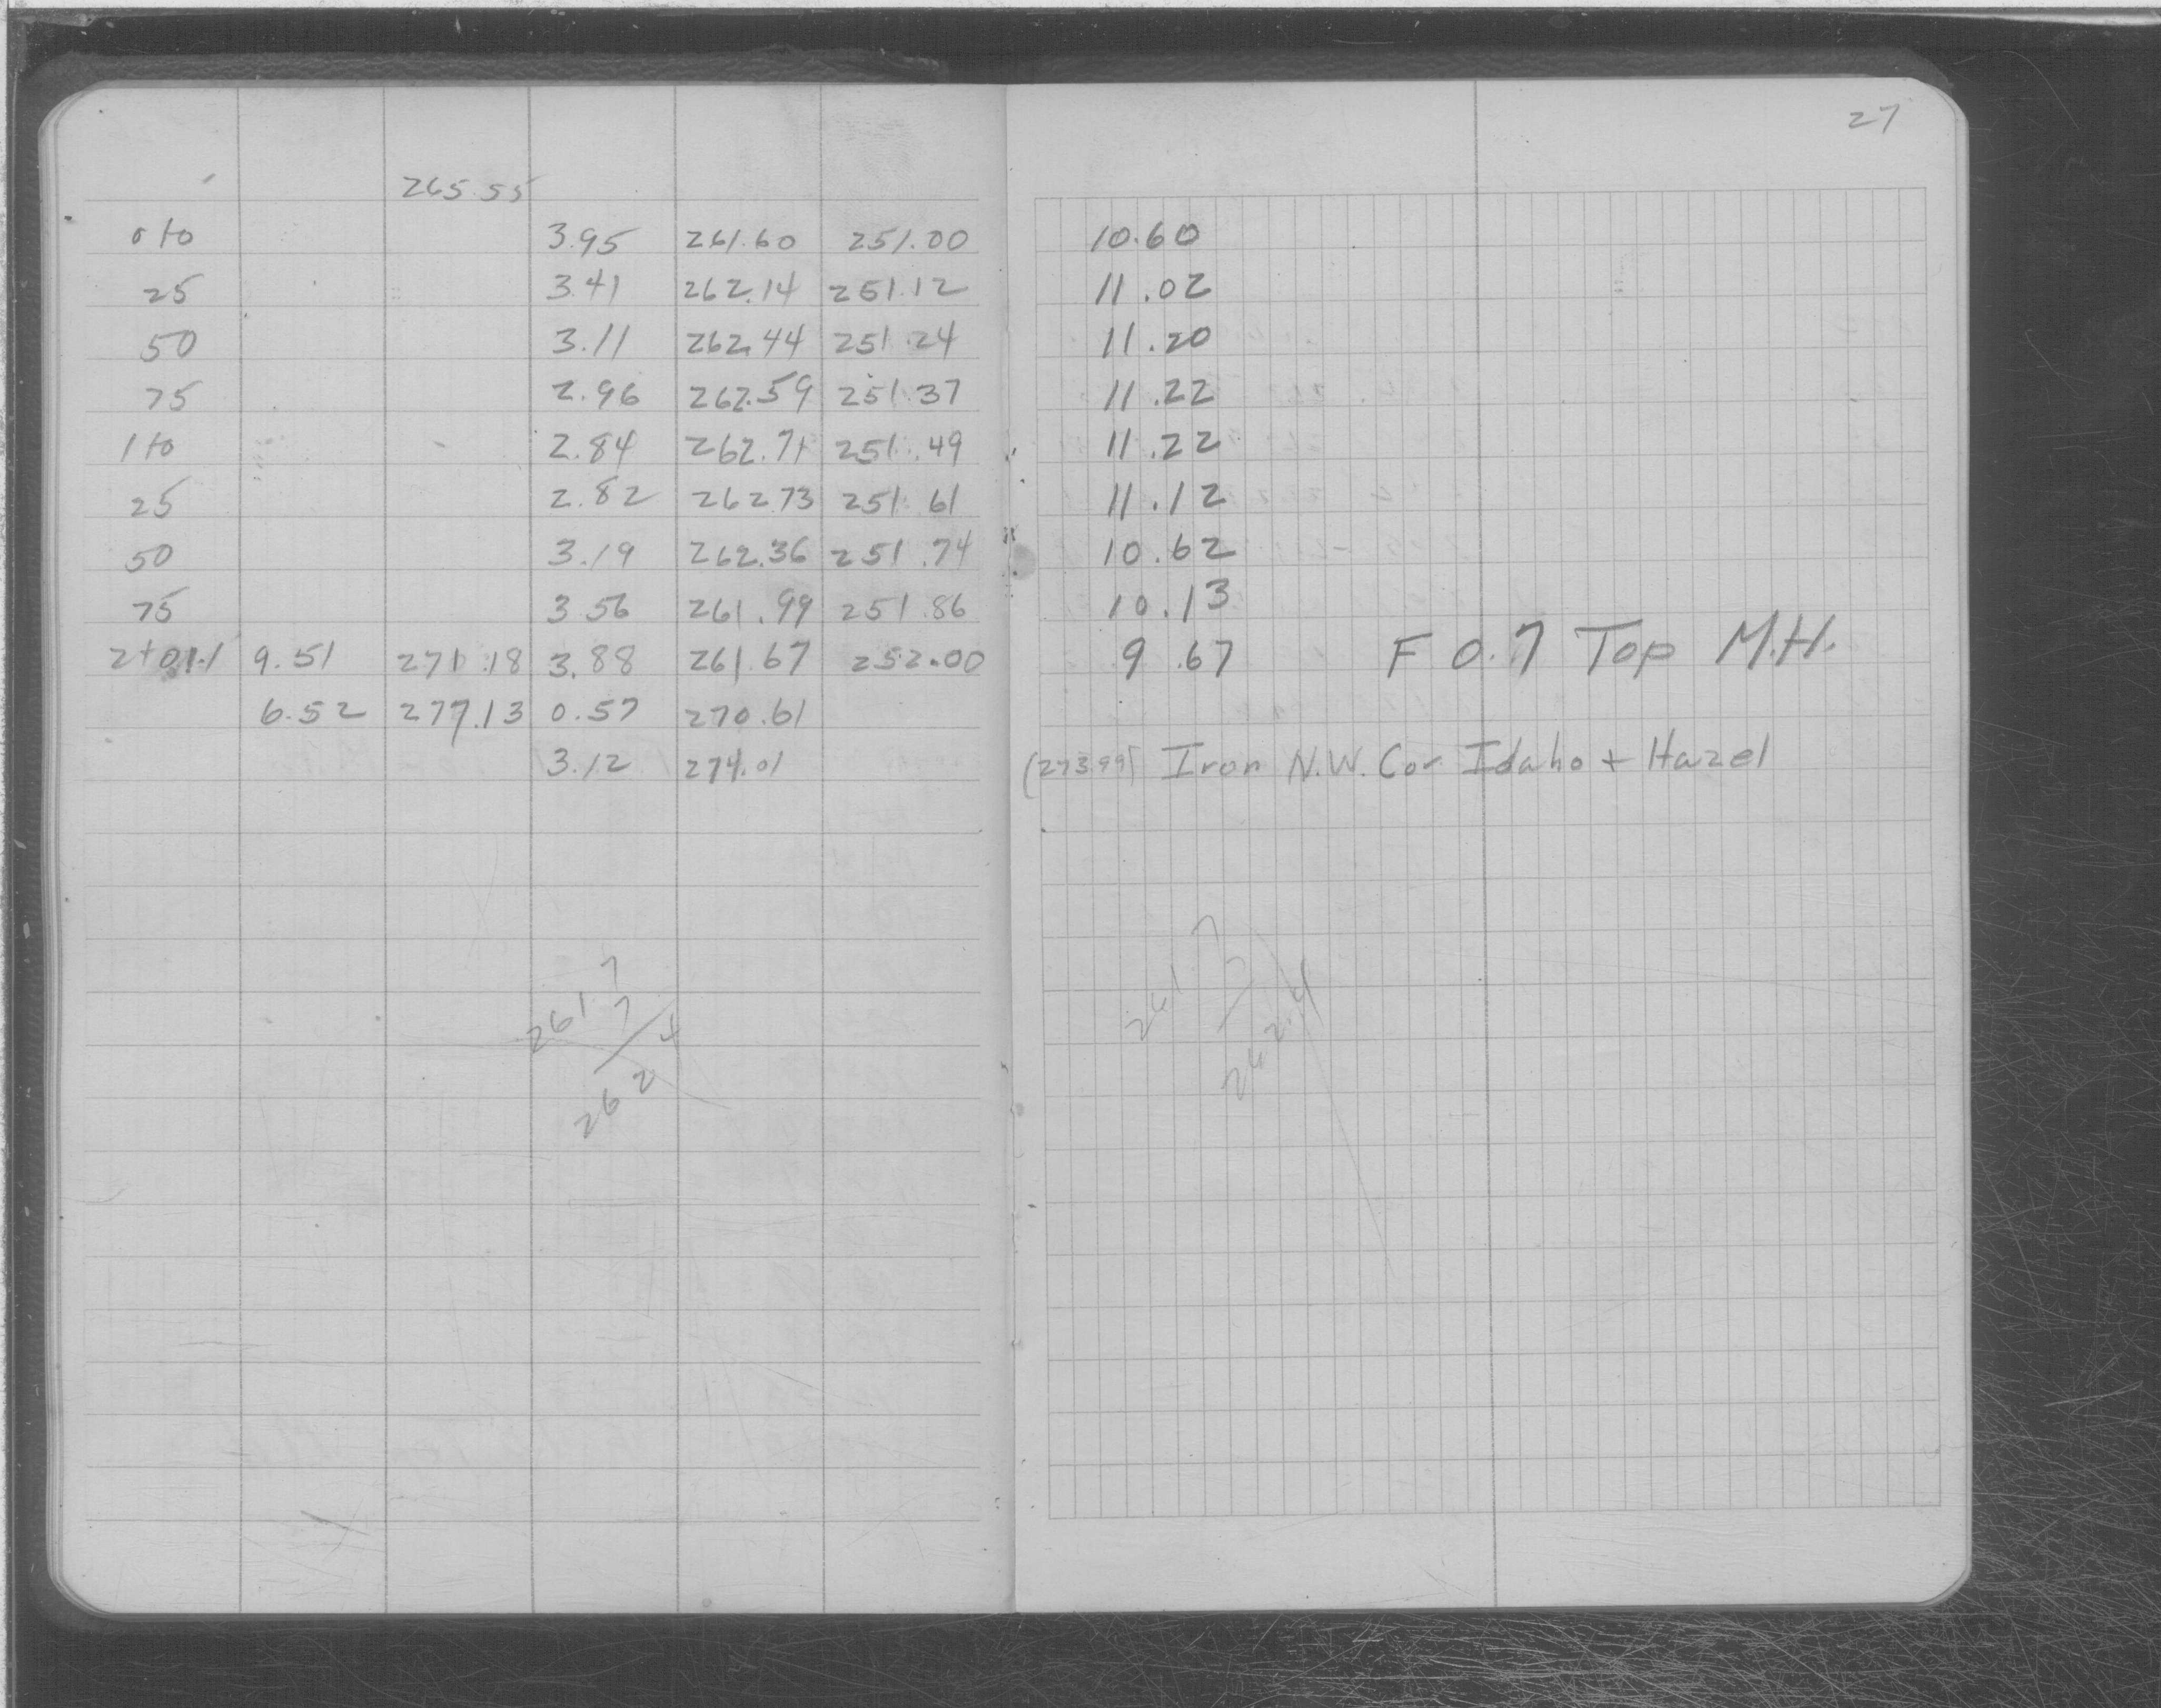 27
265.55
0+0 3.95 261.60 251.00 10.60
25 3.41 262.14 251.12 11.02
50 3.11 262.44 251.24 11.20
75 2.96 262.59 251.37 11.22
1+0 2.84 262.71 251.49 11.22
25 2.82 262.73 251.61 11.12
50 3.19 262.36 251.74 10.62
75 3.56 261.99 251.86 10.13
2+01.1 9.51 271.18 3.88 261.67 252.00 9.67 F 0.7 Top M.H.
6.52 277.13 0.57 270.61
3.12 274.01 (273.99) Iron N.W. Cor Idaho + Hazel
261 7
7
262 4
261 7
7
262.4